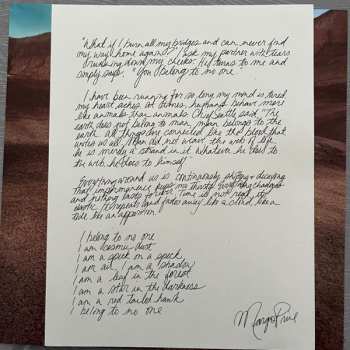 "What if I burn all my bridges and can never find
my way home again?" I ask my partner with tears
running down my cheeks. He turns to me and
simply says, "You belong to no one."
I have been running for so long my mind is tired
my heart aches at times, humans behave more
like animals than animals. Chief Seattle said "The
earth does not belong to man, man belongs to the
earth. all things are connected like the blood that
unites us all. Man did not weave the web of life
he is merely a strand in it. Whatever he does to
the web, he does to himself."
Everything around us is continuously shifting & decaying
that impermanence keeps me thirsty. Everything changes
and nothing lasts forever. Time is not real, it's
elastic. It expands and fades away like a cloud, like a
like an apparition.
I belong to no one
I am cosmic dust
I am a speck on a speck
I am air I am a shadow
I am a leaf in the forest
I am a star in the darkness
I am a red tailed hawk
I belong to no one
Margo Price